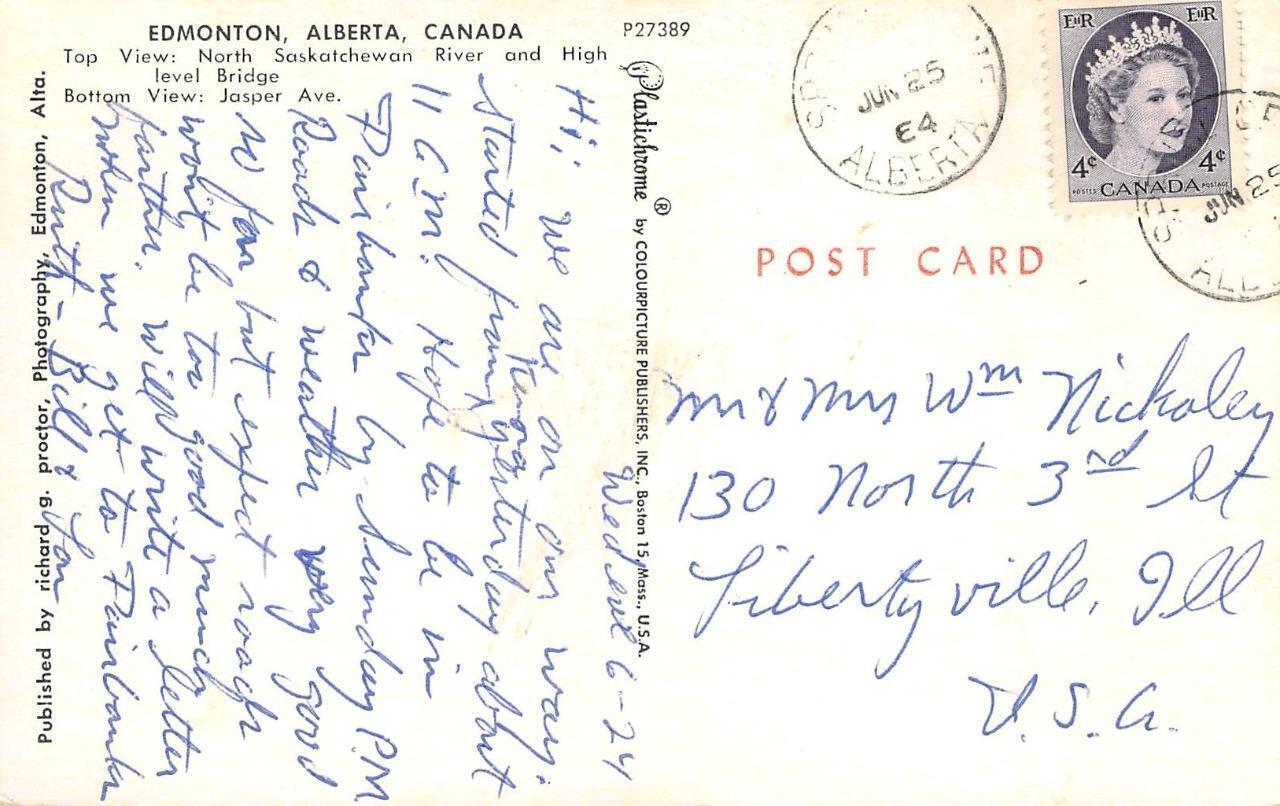 EDMONTON, ALBERTA, CANADA
Top View: North Saskatchewan River and High
level Bridge
Bottom View: Jasper Ave.
P27389
Published by richard g. proctor, Photography, Edmonton, Alta.
Plastichrome ® by COLOURPICTURE PUBLISHERS, INC., Boston 15, Mass., U.S.A.
Wed eve 6-24
Hi; We are on our way.
started from yesterday about
11 A.M. Hope to be in
Fairbanks by Sunday P.M
Roads & weather very good
so far but expect roads
wont be too good much
farther. will write a letter
when we get to Fairbanks
Ruth - Bill &
JUN 25
64
ALBERTA
EIIR EIIR
4¢ 4¢
POSTES CANADA POSTAGE
JUN 25
POST CARD
Mr & Mrs Wm Nickoley
130 North 3rd St
Libertyville, Ill
U.S.A.